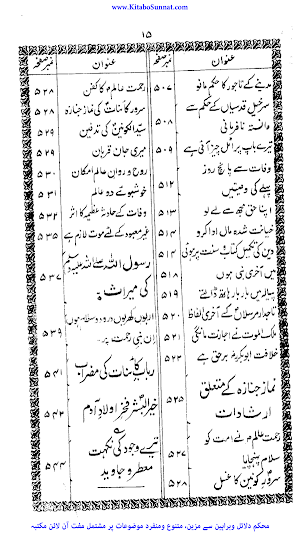 www.KitaboSunnat.com
۱۵
عنوان
نمبر صفحہ
مدینے کے تاجور کا حکم مانو
۵۰۷
سرخیل قدسیاں کے حکم سے
دانستہ نافرمانی
۵۰۸
تیرے باپ پر اٹل چیز آئی ہے
۵۰۹
وفات سے پانچ روز
پہلے کی وصیتیں
۵۱۲
اپنا حق مجھ سے لے لو
۵۱۳
خیانت شدہ مال ادا کرو
۵۱۴
دین کی تکمیل کتاب سنت پر ہوئی
میں آخری نبی ہوں
۵۱۸
پیالہ میں بار بار ہاتھ ڈالتے
۵۱۹
تاجدار مرسلاں کے آخری الفاظ
۵۲۰
ملک الموت نے اجازت مانگی
۵۲۱
خلافت ابوبکرؓ برحق ہے
۵۲۳
نماز جنازہ کے متعلق
ارشادات
۵۲۵
رحمت عالم نے امت کو
سلام پہنچایا
۵۲۷
سرور کونین کا غسل
۵۲۸
عنوان
نمبر صفحہ
رحمت عالم کا کفن
۵۲۸
سرور کائنات کی نماز جنازہ
۵۲۸
سید الکونین کی تدفین
۵۲۹
میری جان قربان
۵۲۹
روح و روان عالم امکان
۵۳۰
خوشبوئے دو عالم
۵۳۱
وفات کے حادثہ عظیمہ کا اثر
۵۳۲
غیر معبود کے لئے موت لازم ہے
۵۳۵
رسول اللہ صلے اللہ علیہ وسلم
کی میراث
۵۳۷
اربوں کھربوں درود و سلام ہوں
ان نبی رحمت پر
۵۳۹
رباب کائنات کی مضراب
۵۴۱
خیر البشر فخر اولاد آدم
۵۴۳
تیرے وجود کی نکہت
معطر و جاوید
۵۴۴
محکم دلائل وبراہین سے مزین، متنوع ومنفرد موضوعات پر مشتمل مفت آن لائن مکتبہ